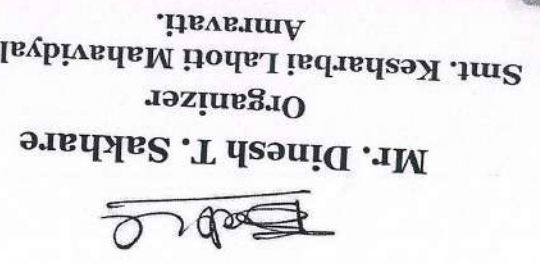 Mr. Dinesh T. Sakhare
Organizer
Smt. Kesharbai Lahoti Mahavidyal
Amravati.